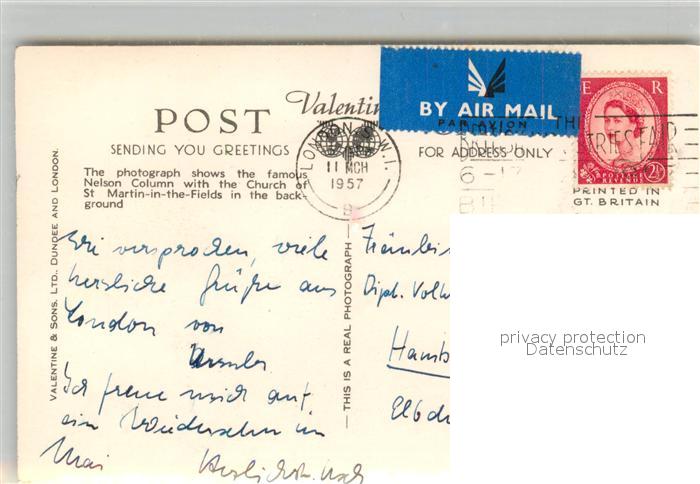 Valentin
POST
SENDING YOU GREETINGS
The photograph shows the famous
Nelson Column with the Church of
St Martin-in-the-Fields in the back-
ground
VALENTINE & SONS, LTD., DUNDEE AND LONDON.
LONDON S.W.1.
11 MCH
1957
BY AIR MAIL
PAR AVION
FOR ADDRESS ONLY
THE
BRITISH
TRIES FAIR
6-17
E R
POSTAGE
REVENUE
2½
PRINTED IN
GT. BRITAIN
THIS IS A REAL PHOTOGRAPH
Wie versprochen, viele
herzliche Grüße aus
London von
Ursula
Ich freue mich auf
ein Wiedersehn im
Mai
Fräulein
Dipl. Volk
Hamb
privacy protection
Datenschutz